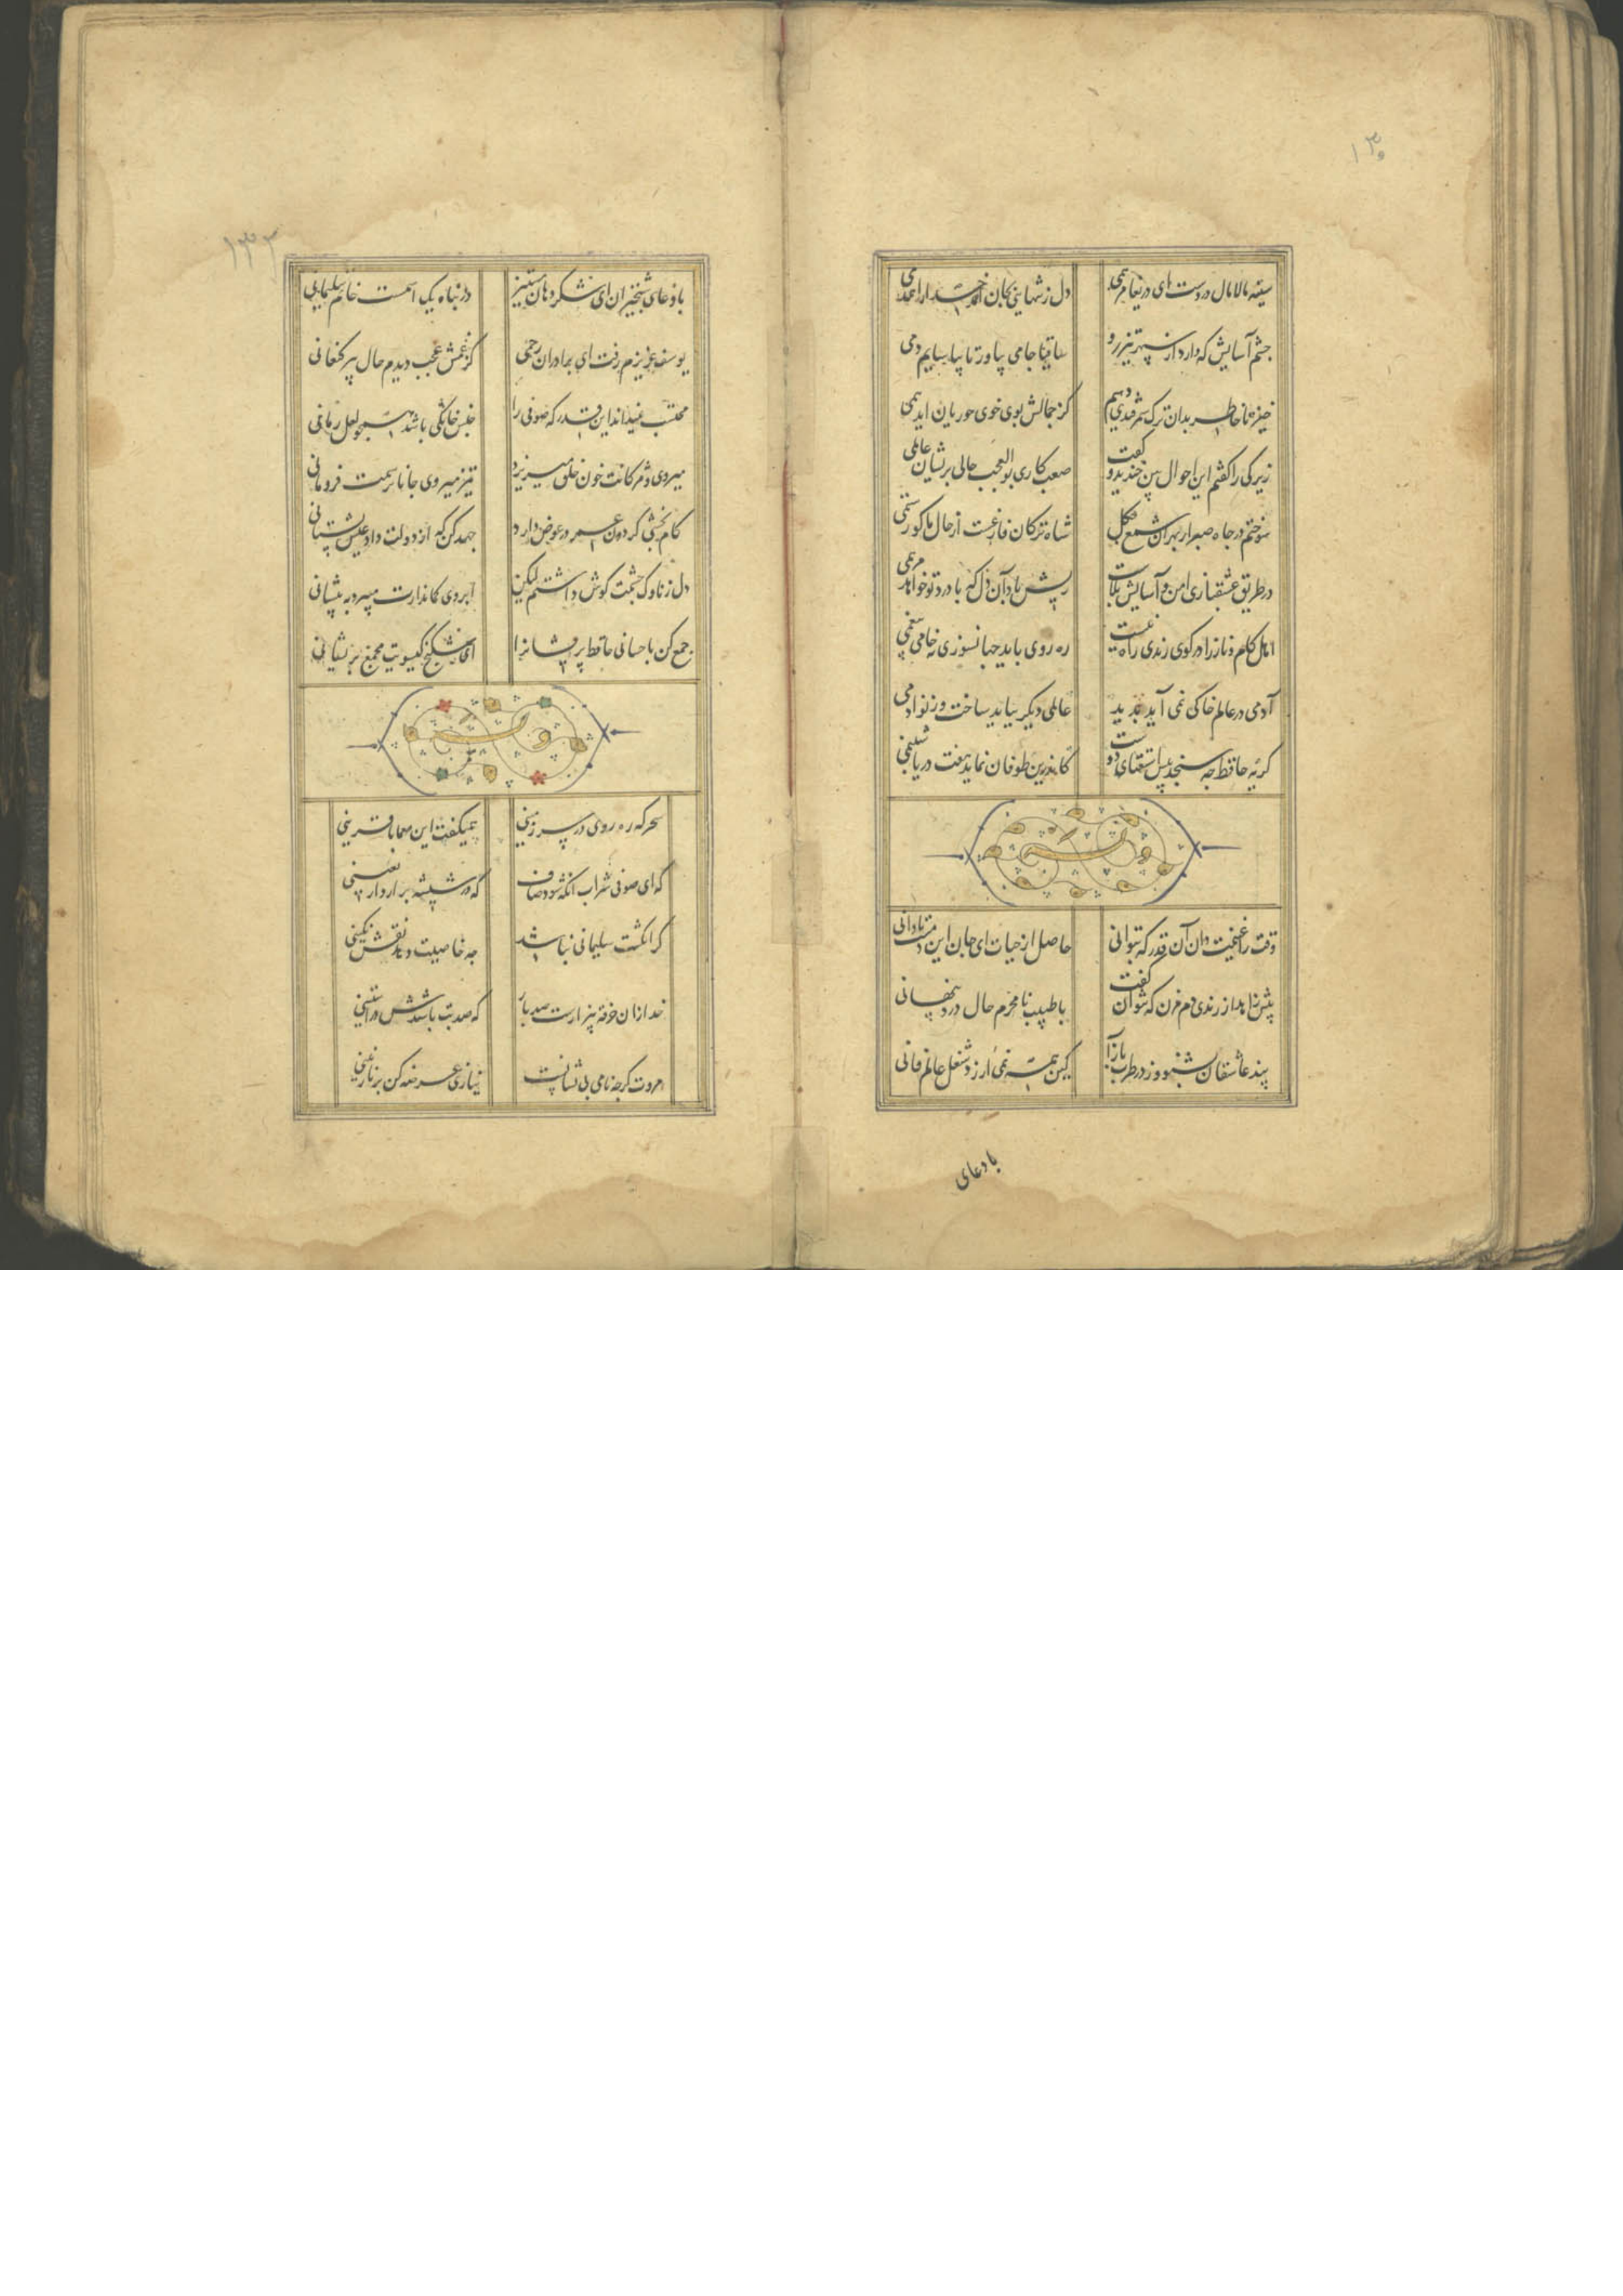 ۱۳۰
سینه مالامال دردست ای دریغا مرهمی
دل ز تنهایی بجان آمد خدا را همدمی
چشم آسایش که دارد از سپهر تیزرو
ساقیا جامی بیاور تا بیاساییم دمی
خیز تا خاطر بدان ترک سمرقندی دهیم
کز جمالش بوی خوی حوریان آید همی
زیرکی را گفتم این احوال بین خندید و گفت
صعب کاری بوالعجب حالی پریشان عالمی
سوختم در چاه صبر از بهر آن شمع چگل
شاه ترکان فارغست از حال ما کو رستمی
در طریق عشقبازی امن و آسایش بلاست
ریش باد آن دل که با درد تو خواهد مرهمی
اهل کام و ناز را در کوی رندی راه نیست
ره روی باید جهانسوزی نه خامی بیغمی
آدمی در عالم خاکی نمی آید پدید
عالمی دیگر بباید ساخت وز نو آدمی
گریه حافظ چه سنجد پیش استغنای دوست
کاندرین طوفان نماید هفت دریا شبنمی
وله
وقت را غنیمت دان آن قدر که بتوانی
حاصل از حیات ای جان این دمست تا دانی
پیش زاهد از رندی دم مزن که نتوان گفت
با طبیب نامحرم حال درد پنهانی
پند عاشقان بشنو وز در طرب بازآ
کین همه نمی ارزد شغل عالم فانی
با دعای
۱۳۲
با دعای شبخیزان ای شکردهان مستیز
در پناه یک اسمست خاتم سلیمانی
یوسف عزیزم رفت ای برادران رحمی
کز غمش عجب دیدم حال پیر کنعانی
محتسب نمیداند این قدر که صوفی را
جنس خانگی باشد همچو لعل رمانی
میروی و مژگانت خون خلق میریزد
تیز میروی جانا ترسمت فرو مانی
کام بخشی گردون عمر در عوض دارد
جهد کن که از دولت داد عیش بستانی
دل ز ناوک چشمت گوش داشتم لیکن
ابروی کماندارت میبرد به پیشانی
جمع کن باحسانی حافظ پریشانرا
ای شکنج گیسویت مجمع پریشانی
وله
سحرگه ره روی در سرزمینی
همیگفت این معما با قرینی
که ای صوفی شراب انگه شود صاف
که در شیشه برآرد اربعینی
گر انگشت سلیمانی نباشد
چه خاصیت دهد نقش نگینی
خدا زان خرقه بیزارست صد بار
که صد بت باشدش در آستینی
مروت گرچه نامی بی نشانست
نیازی عرضه کن بر نازنینی